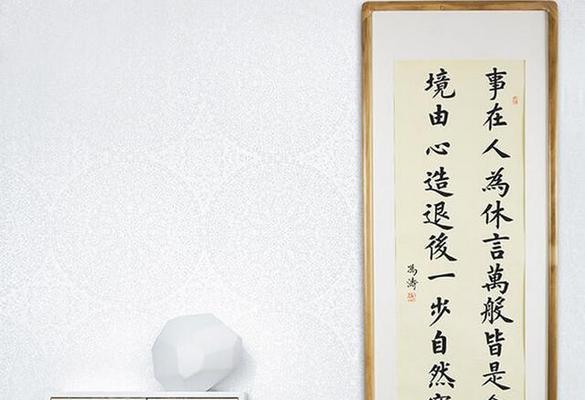 事在人為休言萬般皆是
境由心造退後一步自然
馮濤